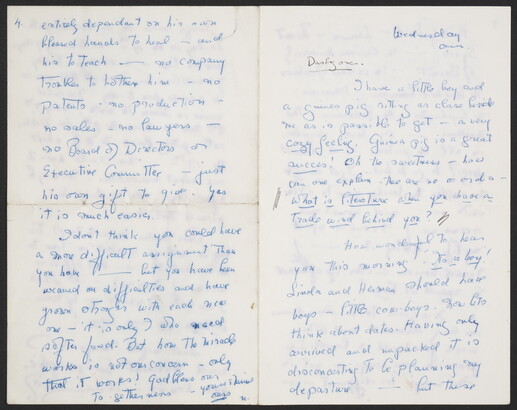 4.
entirely dependant on his own
blessed hands to heal - and
his to teach - no company
troubles to bother him - no
patents - no production -
no sales - no lawyers -
no Board of Directors or
Executive Committee - just
his own gift to give. Yes
it is much easier.
I don't think you could have
a more difficult assignment than
you have - but you have been
weaned on difficulties and have
grown stronger with each new
one - it is only I who need
softer food. But how the miracle
works is not our concern - only
that it works! God bless our
To-getherness - yours & mine
ours
Wednesday
Darling one.
I have a little boy and
a guinea pig sitting as close beside
me as is possible to get - a very
cozy feeling. Guinea pig is a great
success! Oh the sweetness - how
can one explain. There are no words -
What is literature when you have a
Trade wind behind you?
How wonderful to hear
you this morning! Its a boy!
Linda and Herman should have
boys - little cow-boys. Now lets
think about dates. Having only
arrived and unpacked it is
disconcerting to be planning my
departure - but these